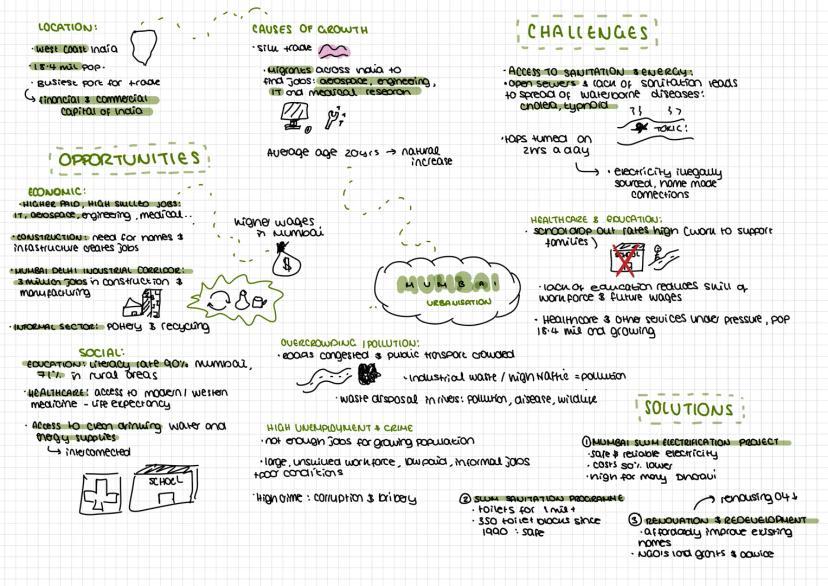 LOCATION:
· West coast India
· 18.4 mil pop.
· Busiest port for trade
financial & commercial
capital of India
CAUSES OF GROWTH
· silk trade
· Migrants across India to
find jobs: aerospace, engineering,
IT and medical research
Average age 20yrs → natural
increase
OPPORTUNITIES
ECONOMIC:
· HIGHER PAID, HIGH SKILLED JOBS:
IT, aerospace, engineering, medical..
· CONSTRUCTION: need for homes &
infrastructure creates jobs
· MUMBAI DELHI INDUSTRIAL CORRIDOR:
3 million jobs in construction &
manufacturing
· INFORMAL SECTOR: pottery & recycling
higher wages
in Mumbai
$
SOCIAL:
EDUCATION: literacy rate 90% mumbai,
71% in rural areas
· HEALTHCARE: access to modern/western
medicine - life expectancy
· Access to clean drinking water and
energy supplies
interconnected
SCHOOL
MUMBAI
URBANISATION
OVERCROWDING & POLLUTION:
· Roads congested & public transport crowded
· Industrial waste / high traffic = pollution
· waste disposal in rivers: pollution, disease, wildlife
HIGH UNEMPLOYMENT & CRIME
· not enough jobs for growing population
· large, unskilled workforce, low paid, informal jobs
+ poor conditions
· High crime: corruption & bribery
CHALLENGES
· ACCESS TO SANITATION & ENERGY:
· open sewers & lack of sanitation leads
to spread of waterborne diseases:
cholea, typhoid
TOXIC!
· taps turned on
2hrs a day
· electricity illegally
sourced, home made
connections
HEALTHCARE & EDUCATION:
· school drop out rates high (work to support
families)
SCHOOL
· lack of education reduces skill of
workforce & future wages
· Healthcare & other services under pressure, pop
18.4 mil and growing
SOLUTIONS
① MUMBAI SLUM ELECTRIFICATION PROJECT
· safe & reliable electricity
· costs 50% lower
· high for many Dharavi
② SLUM SANITATION PROGRAMME
· toilets for 1 mil +
· 350 toilet blocks since
1990 : safe
rehousing
③ RENOVATION & REDEVELOPMENT
· affordably improve existing
homes
· NGO's land grants & advice